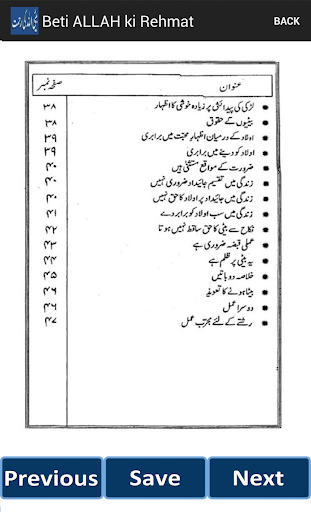 Beti ALLAH ki Rehmat
BACK
عنوان صفحہ نمبر
لڑکی کی پیدائش پر زیادہ خوشی کا اظہار ۳۸
بیٹیوں کے حقوق ۳۸
اولاد کے درمیان اظہارِ محبت میں برابری ۳۹
اولاد کو دینے میں برابری ۳۹
ضرورت کے مواقع مستثنیٰ ہیں ۴۰
زندگی میں تقسیم جائیداد ضروری نہیں ۴۰
زندگی میں جائیداد پر اولاد کا حق نہیں ۴۰
زندگی میں سب اولاد کو برابر دے ۴۱
نکاح سے بیٹی کا حق ساقط نہیں ہوتا ۴۲
عملی قبضہ ضروری ہے ۴۳
یہ بیٹی پر ظلم ہے ۴۴
خلاصہ دو باتیں ۴۵
بیٹا ہونے کا تعویذ ۴۶
دوسرا عمل ۴۶
رشتے کے لئے مجرّب عمل ۴۷
Previous Save Next